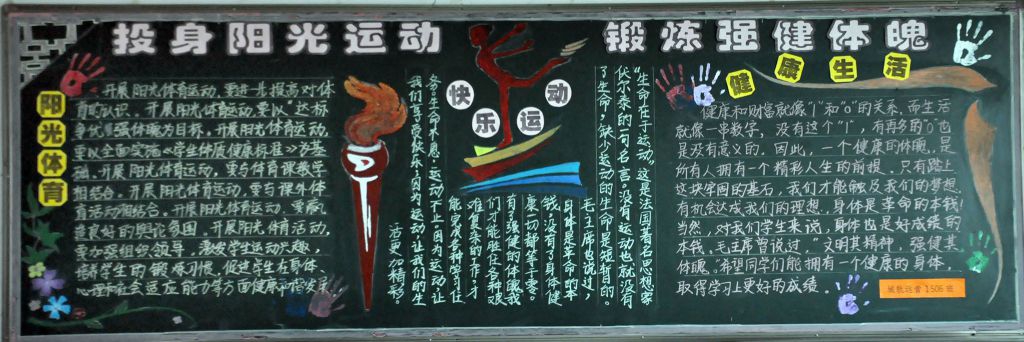 投身阳光运动
锻炼强健体魄
阳光体育
开展阳光体育运动,要进一步提高对体
育的认识。开展阳光体育运动,要以"达标
争优、强健体魄为目标。开展阳光体育运动,
要以全面实施《学生体质健康标准》为基
础。开展阳光体育运动,要与体育课教学
相结合。开展阳光体育运动,要与课外体
育活动相结合。开展阳光体育运动,要营
造良好的舆论氛围。开展阳光体育活动,
要加强组织领导,激发学生运动兴趣,
培养学生的锻炼习惯,促进学生在身体、
心理和社会适应能力等方面健康和谐发展
快乐运动
"生命在于运动。这是法国著名思想家
伏尔泰的一句名言。没有运动也就没有
了生命,缺少运动的生命是短暂的。
毛主席也说过,
身体是革命的本
钱,没有了身体健
康一切都等于零。
有了强健的体魄我
们才能胜任各种艰
难复杂的工作,才
能完成各种学习任
务。生命不息,运动不止。因为运动让
我们享受快乐,因为运动让我们的生
活更加精彩。
健康生活
健康和财富就像"1"和"0"的关系,而生活
就像一串数字,没有这个"1",有再多的"0"也
是没有意义的。因此,一个健康的体魄,是
所有人拥有一个精彩人生的前提。只有踏上
这块牢固的基石,我们才能触及我们的梦想,
有机会达成我们的理想,身体是革命的本钱!
当然,对我们学生来说,身体也是好成绩的
本钱。毛主席曾说过,"文明其精神,强健其
体魄。"希望同学们能拥有一个健康的身体,
取得学习上更好的成绩。
1506班